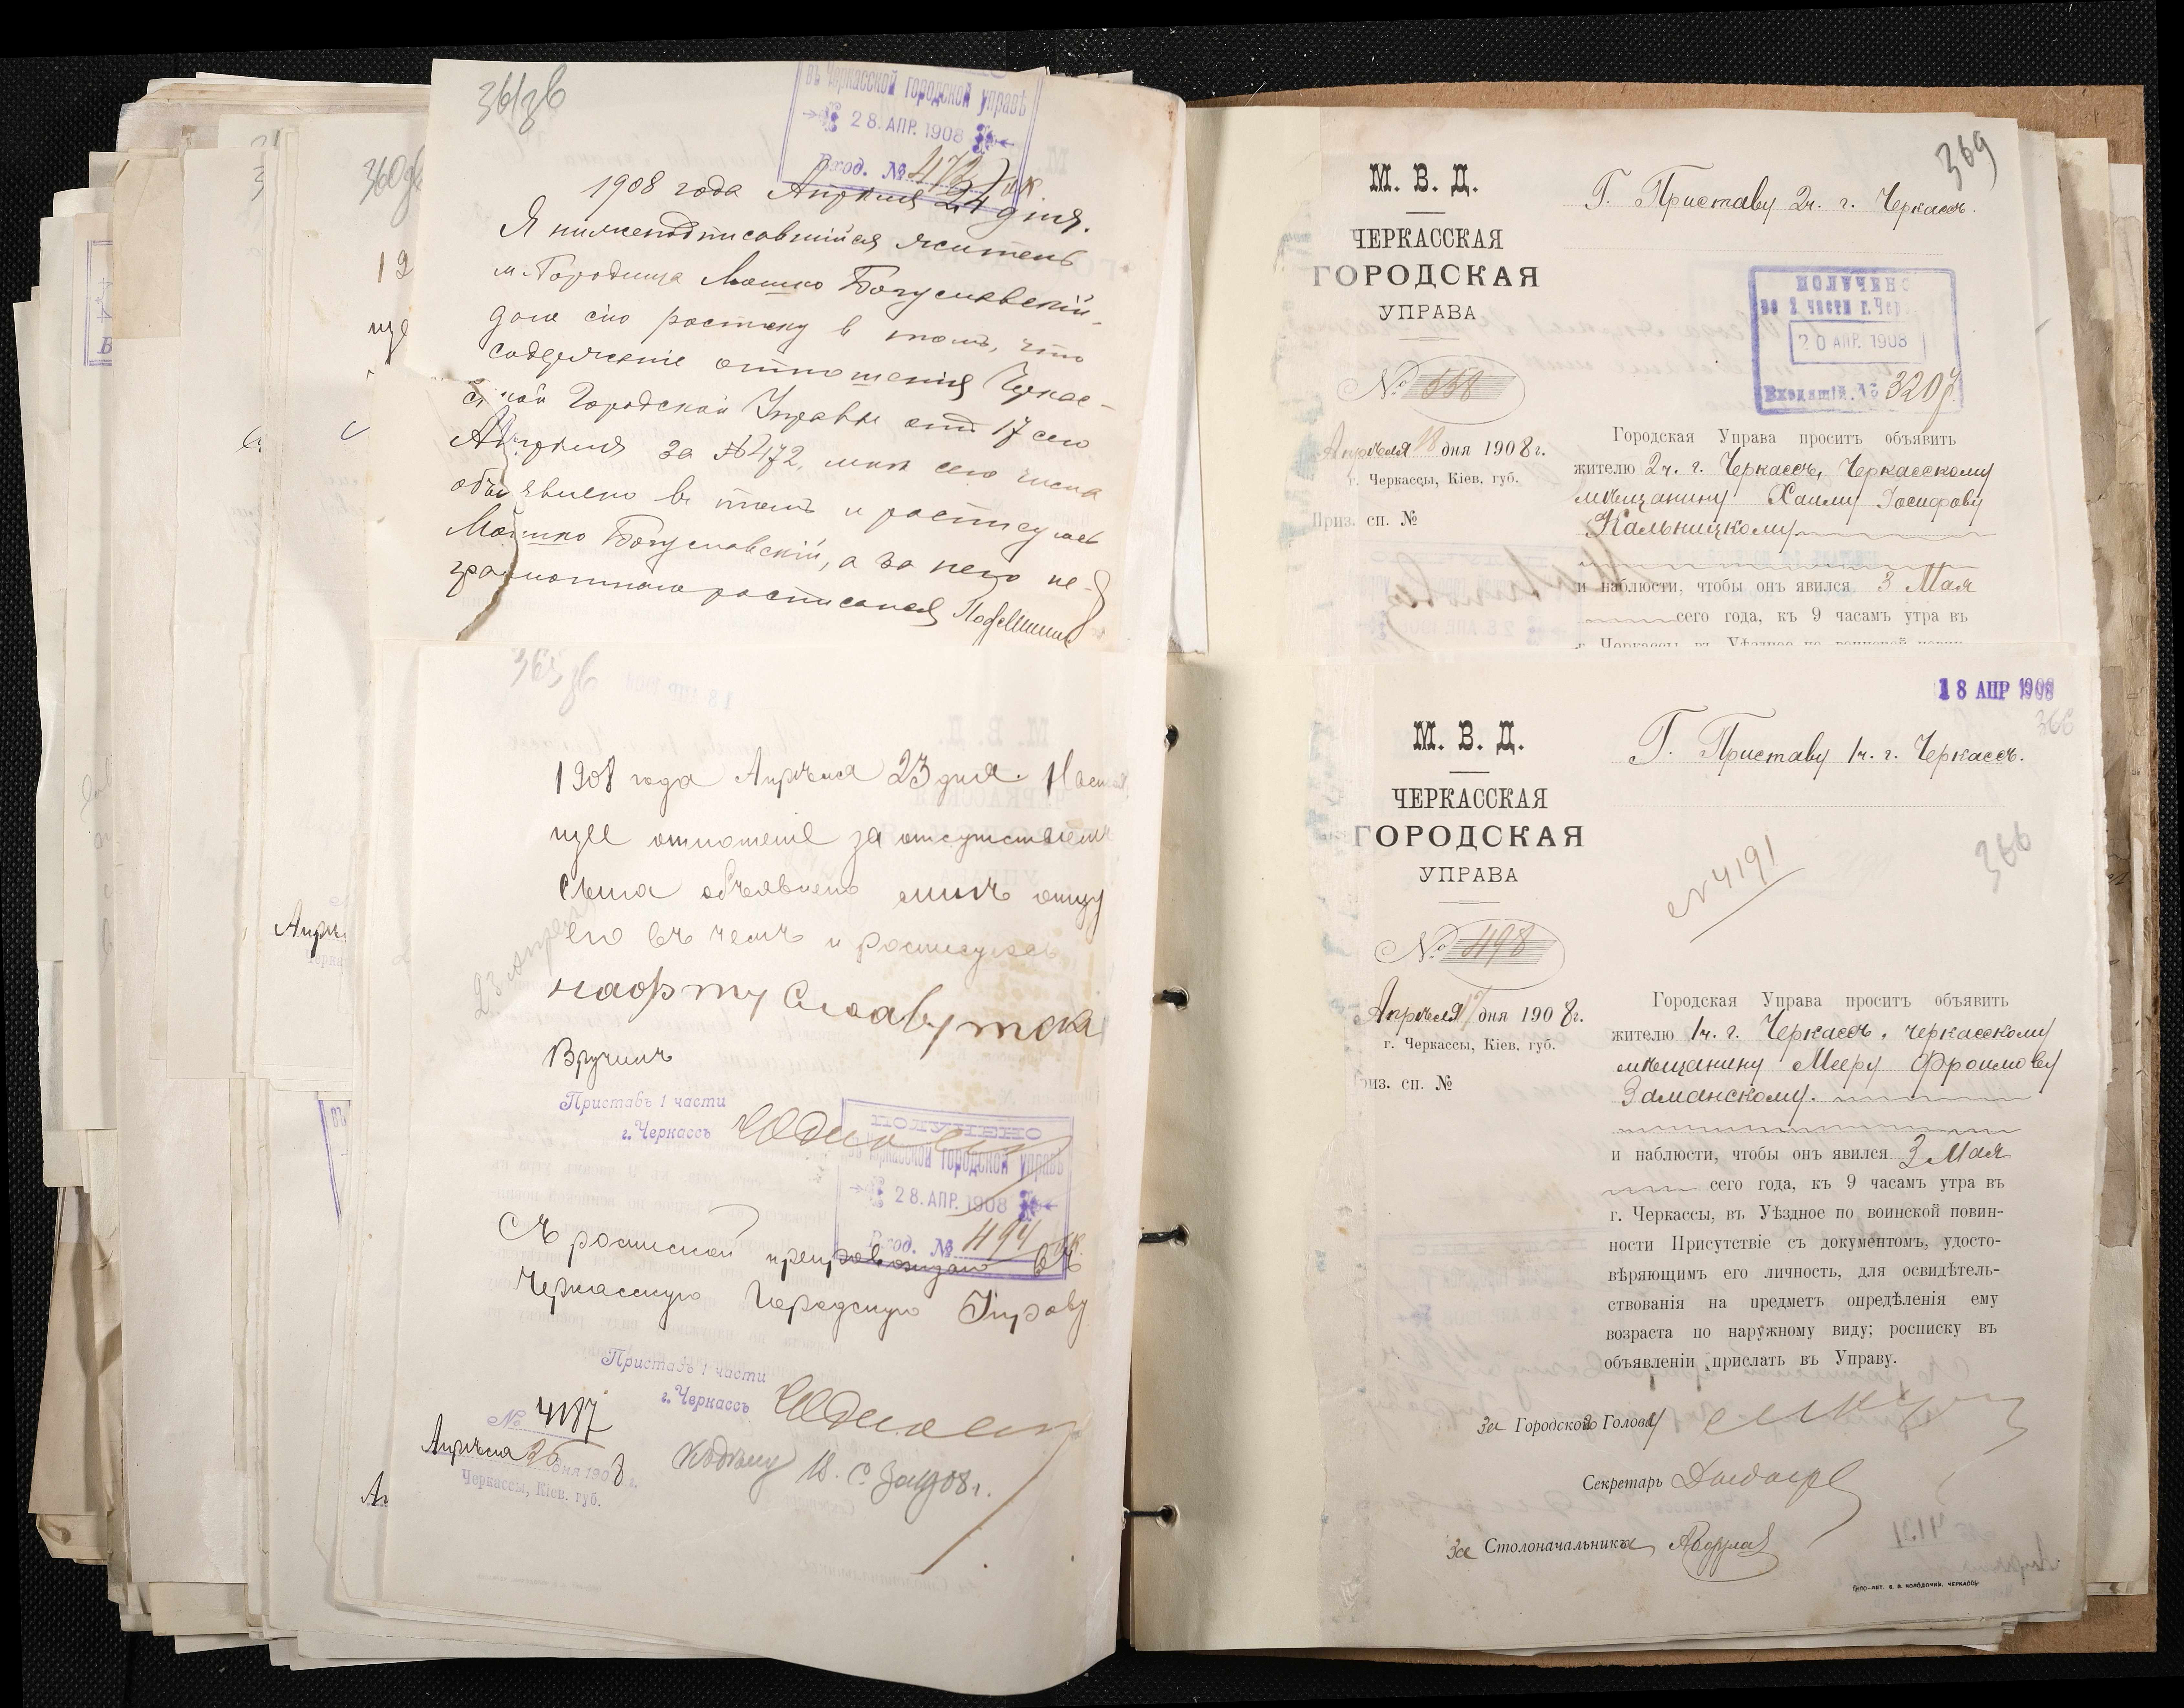 361зв
въ Черкасской городской управѣ
28. АПР. 1908
Вход. № 472
1908 года Апрѣля 24 дня.
Я нижеподписавшійся житель
м. Городища Мошко Богуславскій,
даю сію росписку в томъ, что
содержаніе отношенія Черкас-
ской Городской Управы отъ 17 сего
Апрѣля за №472, мнѣ сего числа
объявлено въ томъ и росписуюсь
Мошко Богуславскій, а за него не-
грамотнаго росписался
360зв
19
ще
Апрѣ
365зв
1908 года Апрѣля 23 дня. Настоя
щее отношеніе за отсутствіемъ
сына объявлено мнѣ отцу
его въ чемъ и росписуюсь
23 Апрѣля
Вручилъ
Приставъ 1 части
г. Черкассъ
ПОЛУЧЕНО
въ Черкасской городской управѣ
28. АПР. 1908
Вход. № 494
Съ роспиской препровождаю въ
Черкасскую Городскую Управу
Приставъ 1 части
г. Черкассъ
№ 4187
Апрѣля 26 дня 1908 г.
Черкассы, Кіев. губ.
369
М. В. Д.
ЧЕРКАССКАЯ
ГОРОДСКАЯ
УПРАВА
№ 558
Апрѣля 18 дня 1908 г.
г. Черкассы, Кіев. губ.
Приз. сп. №
Г. Приставу 2ч. г. Черкассъ.
ПОЛУЧЕНО
во 2 части г. Чер.
20 АПР. 1908
Входящій. № 3207.
Городская Управа проситъ объявить
жителю 2ч. г. Черкассъ, Черкасскому
мѣщанину Хаиму Іосифову
Кальницкому
и наблюсти, чтобы онъ явился 3 Мая
сего года, къ 9 часамъ утра въ
г. Черкассы, въ Уѣздное по воинской повин-
18 АПР 1908
366
М. В. Д.
ЧЕРКАССКАЯ
ГОРОДСКАЯ
УПРАВА
№ 498
Апрѣля 17 дня 1908 г.
г. Черкассы, Кіев. губ.
Приз. сп. №
Г. Приставу 1ч. г. Черкассъ.
№ 4191
366
Городская Управа проситъ объявить
жителю 1ч. г. Черкассъ, черкасскому
мѣщанину Мееру Фроимову
Заманскому.
и наблюсти, чтобы онъ явился 3 Мая
сего года, къ 9 часамъ утра въ
г. Черкассы, въ Уѣздное по воинской повин-
ности Присутствіе съ документомъ, удосто-
вѣряющимъ его личность, для освидѣтель-
ствованія на предметъ опредѣленія ему
возраста по наружному виду; росписку въ
объявленіи прислать въ Управу.
За Городского Голову
Секретарь
За Столоначальника
Типо-лит. В. В. Колодочки. Черкассы